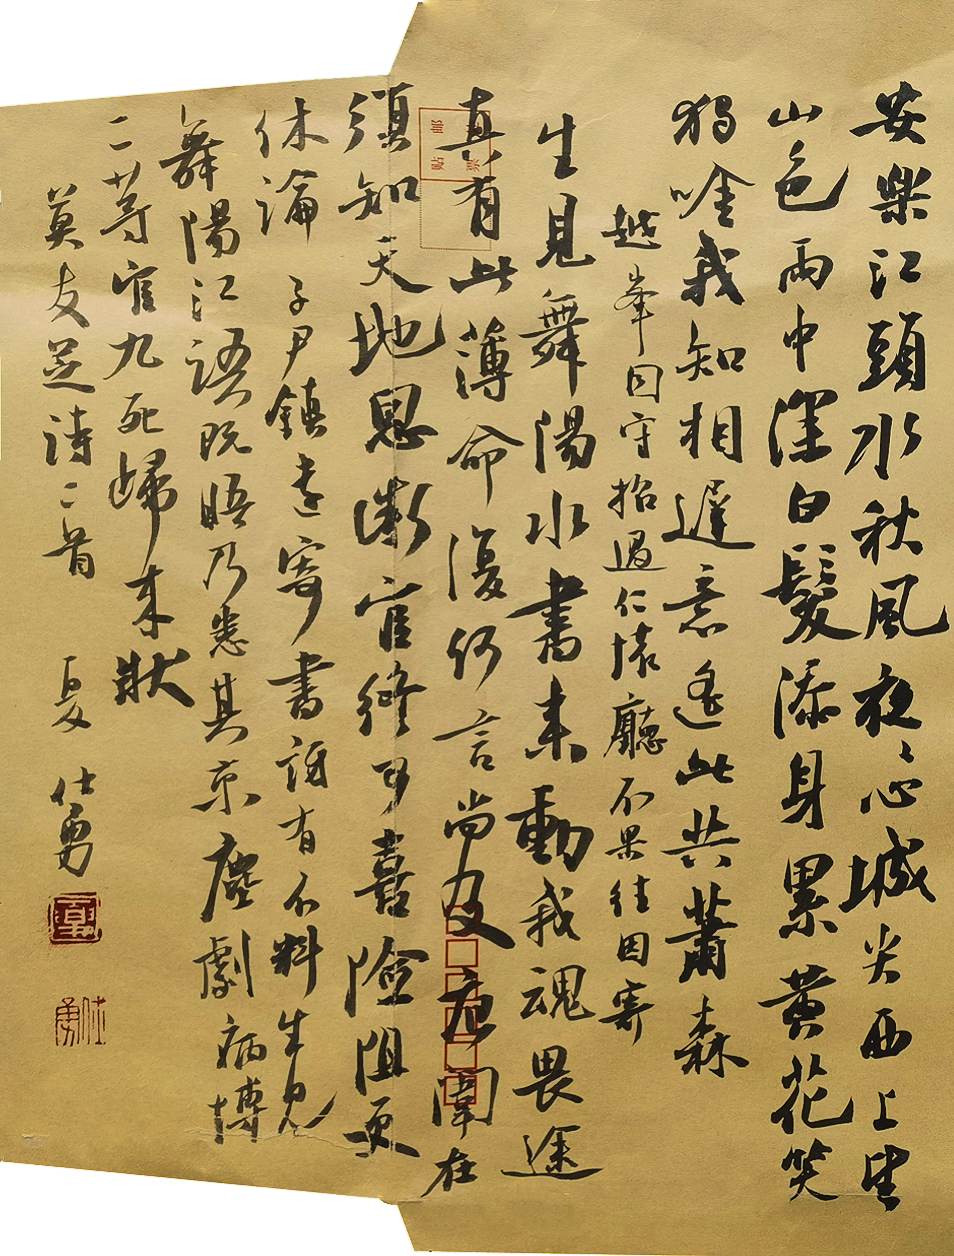 安樂江頭水秋風夜夜心城尖西上望
山色雨中深白髮添身累黃花笑
獨唫我知相遲意遙此共蕭森
越峯因守招過仁懷廳不果往因寄
生見舞陽水書來動我魂畏途
真有此薄命復何言尚友
須知天地恩微官終可喜險阻更
休論 子尹鎮遠寄書訝有不料生見
舞陽江語既晤乃悉其京塵劇病博
二等官九死歸來狀
莫友芝詩二首 夏仕勇